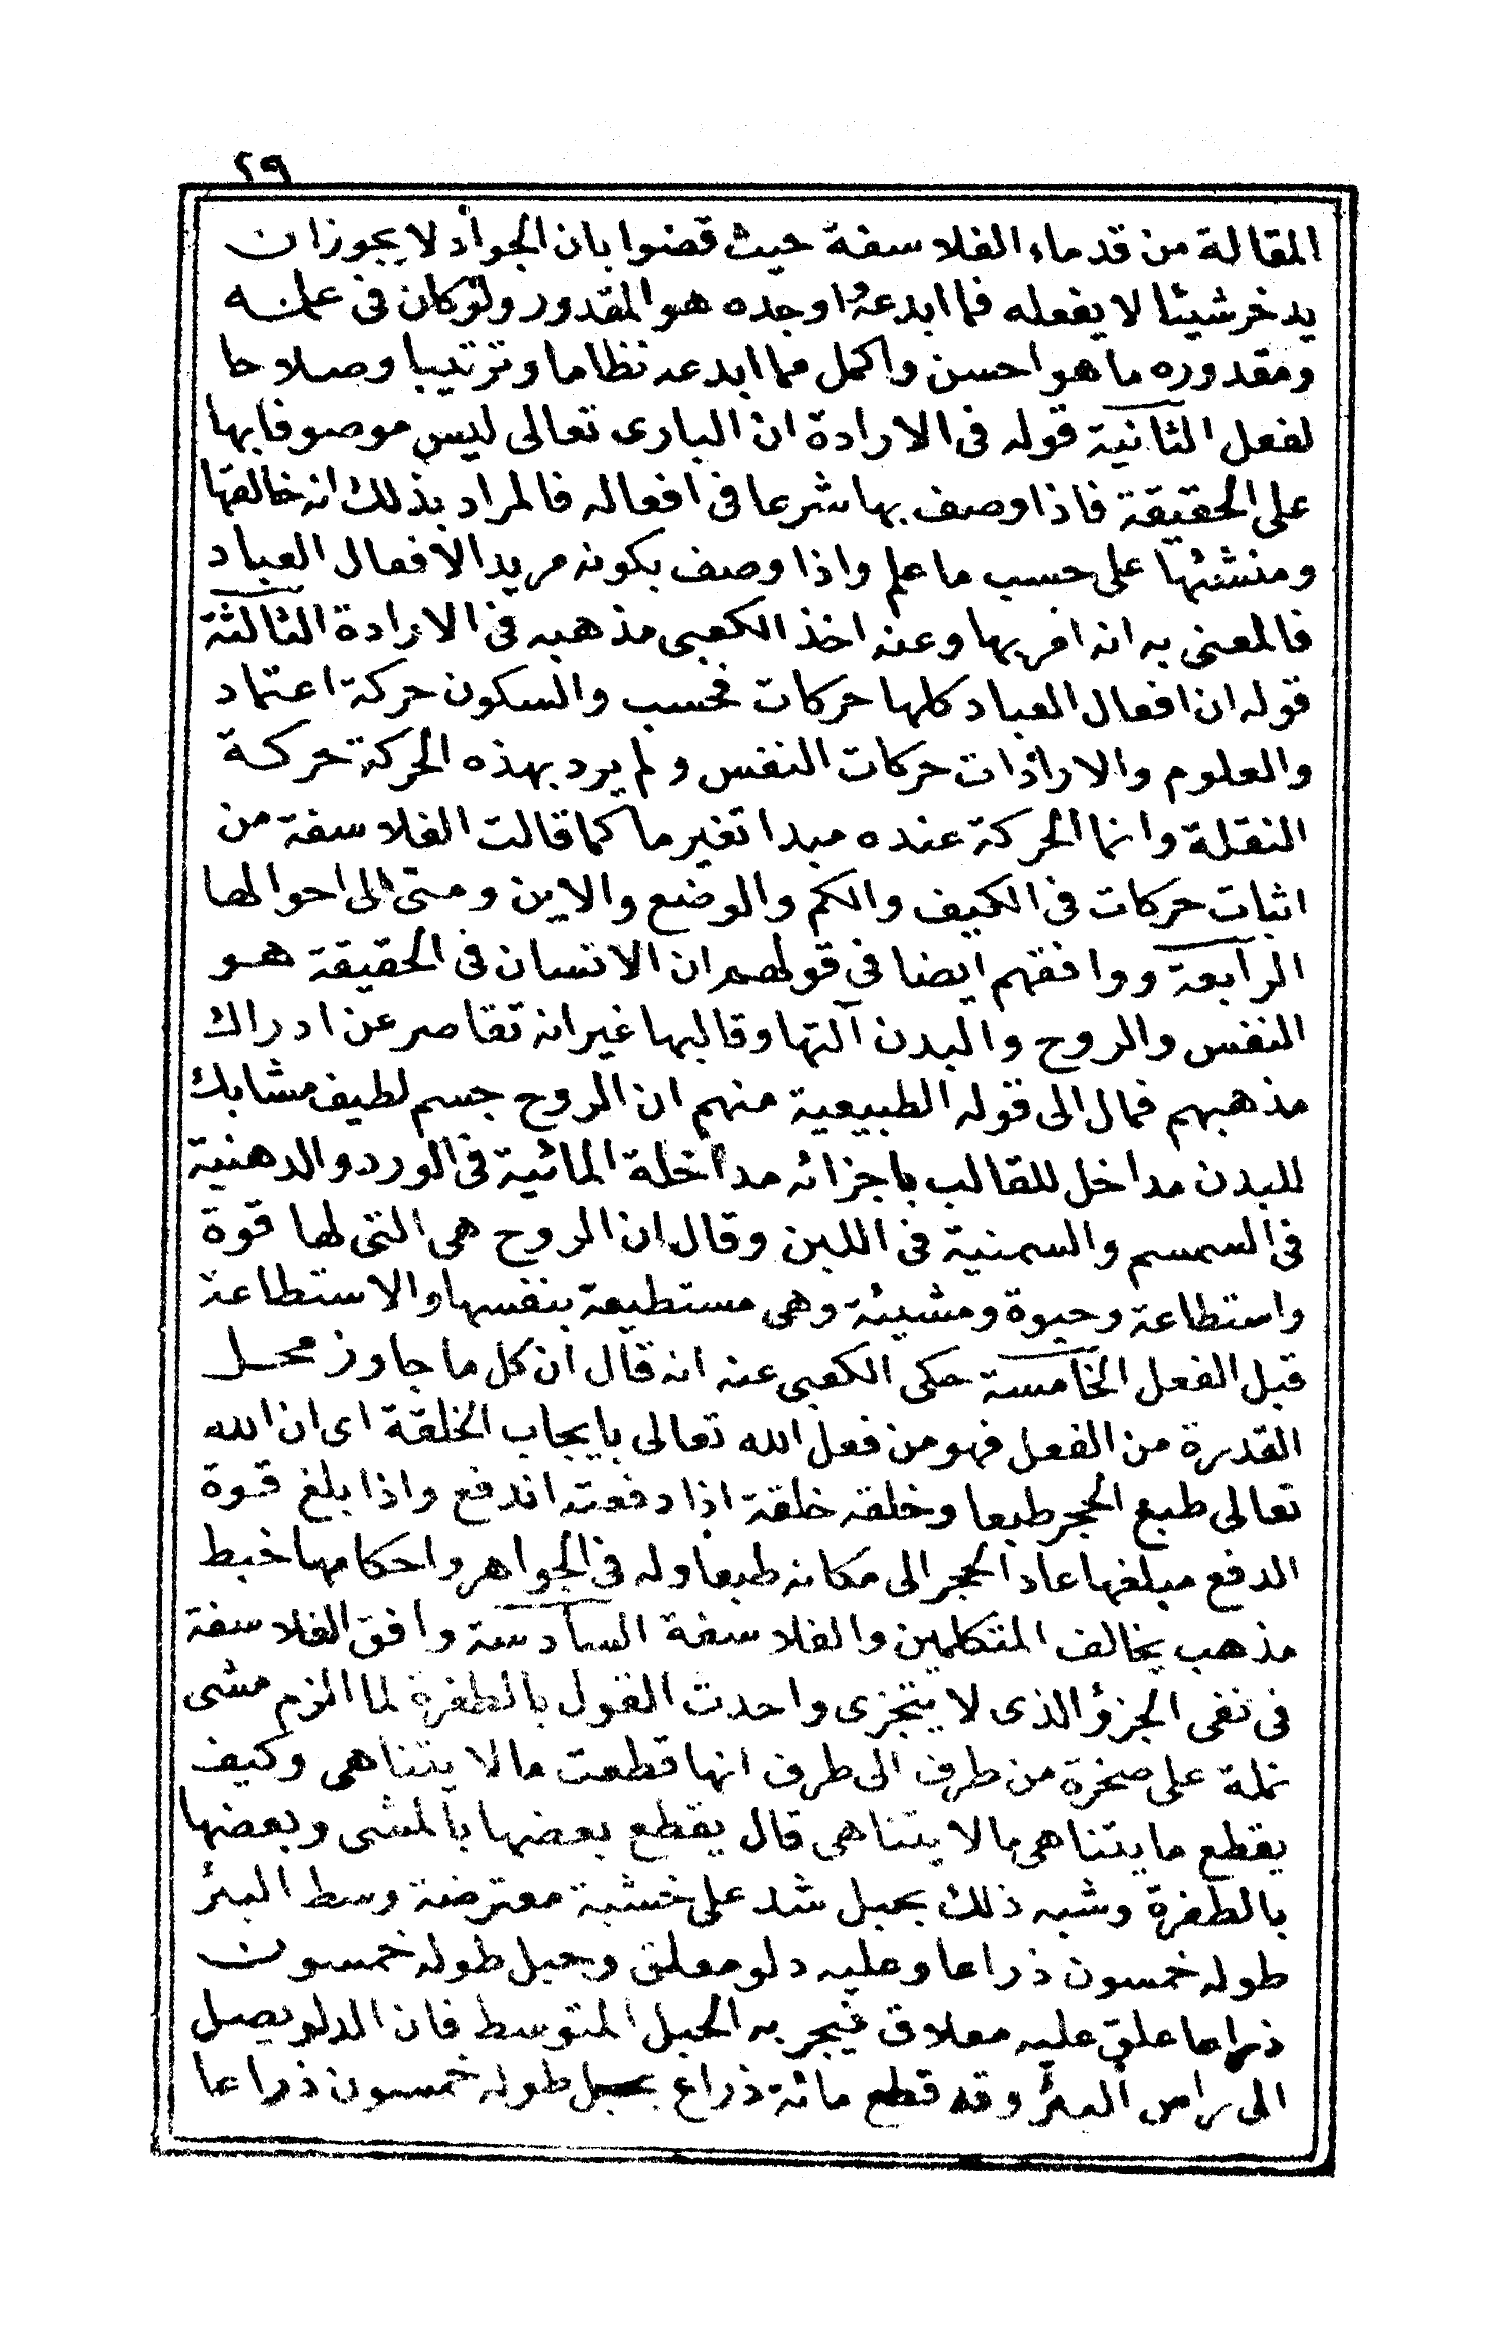 ٢٩
المقالة من قدماء الفلاسفة حيث قضوا بان الجواد لا يجوز ان
يدخر شيئا لا يفعله فما ابدعه واوجده هو المقدور ولو كان فى علمه
ومقدوره ما هو احسن واكمل مما ابدعه نظاما وترتيبا وصلاحا
لفعل الثانية قوله فى الارادة ان البارى تعالى ليس موصوفا بها
على الحقيقة فاذا وصف بها شرعا فى افعاله فالمراد بذلك انه خالقها
ومنشئها على حسب ما علم واذا وصف بكونه مريدا لافعال العباد
فالمعنى به انه امر بها وعنه اخذ الكعبى مذهبه فى الارادة الثالثة
قوله ان افعال العباد كلها حركات فحسب والسكون حركة اعتماد
والعلوم والارادات حركات النفس ولم يرد بهذه الحركة حركة
النقلة وانما الحركة عنده مبدا تغير ما كما قالت الفلاسفة من
اثبات حركات فى الكيف والكم والوضع والاين ومتى الى احوالها
الرابعة ووافقهم ايضا فى قولهم ان الانسان فى الحقيقة هو
النفس والروح والبدن آلتها وقالبها غير انه تقاصر عن ادراك
مذهبهم فمال الى قوله الطبيعية منهم ان الروح جسم لطيف مشابك
للبدن مداخل للقالب باجزائه مداخلة المائية فى الورد والدهنية
فى السمسم والسمنية فى اللبن وقال ان الروح هى التى لها قوة
واستطاعة وحيوة ومشيئة وهى مستطيعة بنفسها والاستطاعة
قبل الفعل الخامسة حكى الكعبى عنه انه قال ان كل ما جاوز محل
القدرة من الفعل فهو من فعل الله تعالى بايجاب الخلقة اى ان الله
تعالى طبع الحجر طبعا وخلقه خلقة اذا دفعته اندفع واذا بلغ قوة
الدفع مبلغها عاد الحجر الى مكانه طبعا وله فى الجواهر واحكامها خبط
مذهب يخالف المتكلمين والفلاسفة السادسة وافق الفلاسفة
فى نفى الجزؤ الذى لا يتجزى واحدث القول بالطفرة لما الزم مشى
نملة على صخرة من طرف الى طرف انها قطعت ما لا يتناهى وكيف
يقطع ما يتناهى ما لا يتناهى قال يقطع بعضها بالمشى وبعضها
بالطفرة وشبه ذلك بحبل شد على خشبة معترضة وسط البئر
طوله خمسون ذراعا وعليه دلو معلق وحبل طوله خمسون
ذراعا علق عليه معلاق فيجر به الحبل المتوسط فان الدلو يصل
الى راس البئر وقد قطع مائة ذراع بحبل طوله خمسون ذراعا